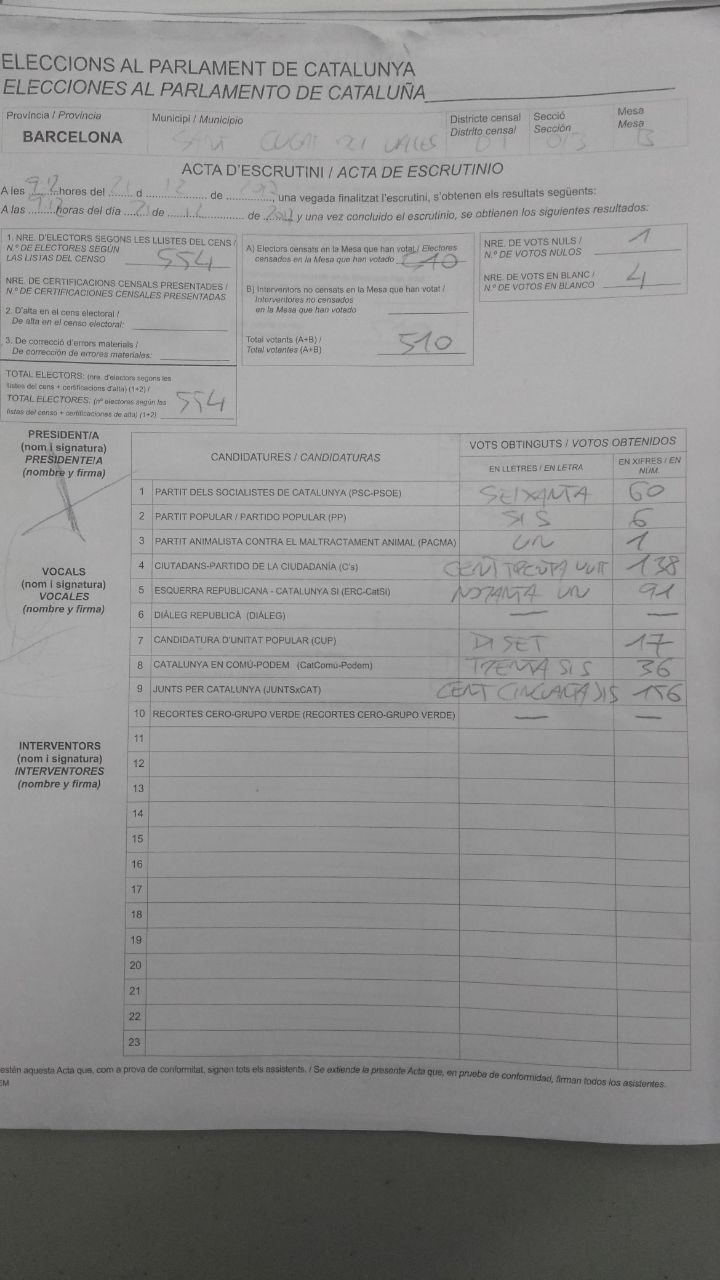 ELECCIONS AL PARLAMENT DE CATALUNYA
ELECCIONES AL PARLAMENTO DE CATALUÑA
Província / Provincia
BARCELONA
Municipi / Municipio
SANT CUGAT DEL VALLES
Districte censal
Distrito censal
01
Secció
Sección
Mesa
Mesa
B
ACTA D'ESCRUTINI / ACTA DE ESCRUTINIO
A les ........ hores del 21 d 12 de ............, una vegada finalitzat l'escrutini, s'obtenen els resultats següents:
A las ........ horas del día 21 de 12 de 2017 y una vez concluido el escrutinio, se obtienen los siguientes resultados:
1. NRE. D'ELECTORS SEGONS LES LLISTES DEL CENS /
N.º DE ELECTORES SEGÚN
LAS LISTAS DEL CENSO 554
NRE. DE CERTIFICACIONS CENSALS PRESENTADES /
N.º DE CERTIFICACIONES CENSALES PRESENTADAS
2. D'alta en el cens electoral /
De alta en el censo electoral:
3. De correcció d'errors materials /
De corrección de errores materiales:
TOTAL ELECTORS: (nre. d'electors segons les
llistes del cens + certificacions d'alta) (1+2) /
TOTAL ELECTORES: (nº electores según las
listas del censo + certificaciones de alta) (1+2) 554
A) Electors censats en la Mesa que han votat / Electores
censados en la Mesa que han votado 510
B) Interventors no censats en la Mesa que han votat /
Interventores no censados
en la Mesa que han votado
Total votants (A+B) /
Total votantes (A+B) 510
NRE. DE VOTS NULS /
N.º DE VOTOS NULOS 1
NRE. DE VOTS EN BLANC /
N.º DE VOTOS EN BLANCO 4
PRESIDENT/A
(nom i signatura)
PRESIDENTE/A
(nombre y firma)
VOCALS
(nom i signatura)
VOCALES
(nombre y firma)
INTERVENTORS
(nom i signatura)
INTERVENTORES
(nombre y firma)
CANDIDATURES / CANDIDATURAS
VOTS OBTINGUTS / VOTOS OBTENIDOS
EN LLETRES / EN LETRA
EN XIFRES / EN NÚM.
1 PARTIT DELS SOCIALISTES DE CATALUNYA (PSC-PSOE) SEIXANTA 60
2 PARTIT POPULAR / PARTIDO POPULAR (PP) SIS 6
3 PARTIT ANIMALISTA CONTRA EL MALTRACTAMENT ANIMAL (PACMA) UN 1
4 CIUTADANS-PARTIDO DE LA CIUDADANÍA (C's) CENT TRENTA VUIT 138
5 ESQUERRA REPUBLICANA - CATALUNYA SI (ERC-CatSí) NORANTA UN 91
6 DIÀLEG REPUBLICÀ (DIÀLEG) — —
7 CANDIDATURA D'UNITAT POPULAR (CUP) DISET 17
8 CATALUNYA EN COMÚ-PODEM (CatComú-Podem) TRENTA SIS 36
9 JUNTS PER CATALUNYA (JUNTSxCAT) CENT CINQUANTA SIS 156
10 RECORTES CERO-GRUPO VERDE (RECORTES CERO-GRUPO VERDE) — —
11
12
13
14
15
16
17
18
19
20
21
22
23
estén aquesta Acta que, com a prova de conformitat, signen tots els assistents. / Se extiende la presente Acta que, en prueba de conformidad, firman todos los asistentes.